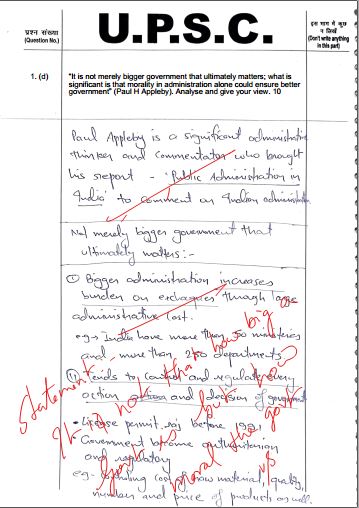 प्रश्न संख्या
(Question No.)
U.P.S.C.
इस भाग में कुछ
न लिखें
(Don't write anything
in this part)
1. (d)
"It is not merely bigger government that ultimately matters; what is
significant is that morality in administration alone could ensure better
government" (Paul H Appleby). Analyse and give your view. 10
Paul Appleby is a significant administrative
thinker and commentator who brought
his report - 'Public Administration in
India' to comment on Indian administration
Not merely bigger government that
ultimately matters:-
① Bigger administration increases
burden on exchequer through large
administrative cost.
eg:- India have more than 50 ministries
and more than 250 departments
Tends to control and regulate every
action and decision of government
License permit raj before 1991
Government become authoritarian
and regulatory
eg- cost of raw material, quality,
number and price of product as well.
Statement
It is not that how big
but
moral the govt
is